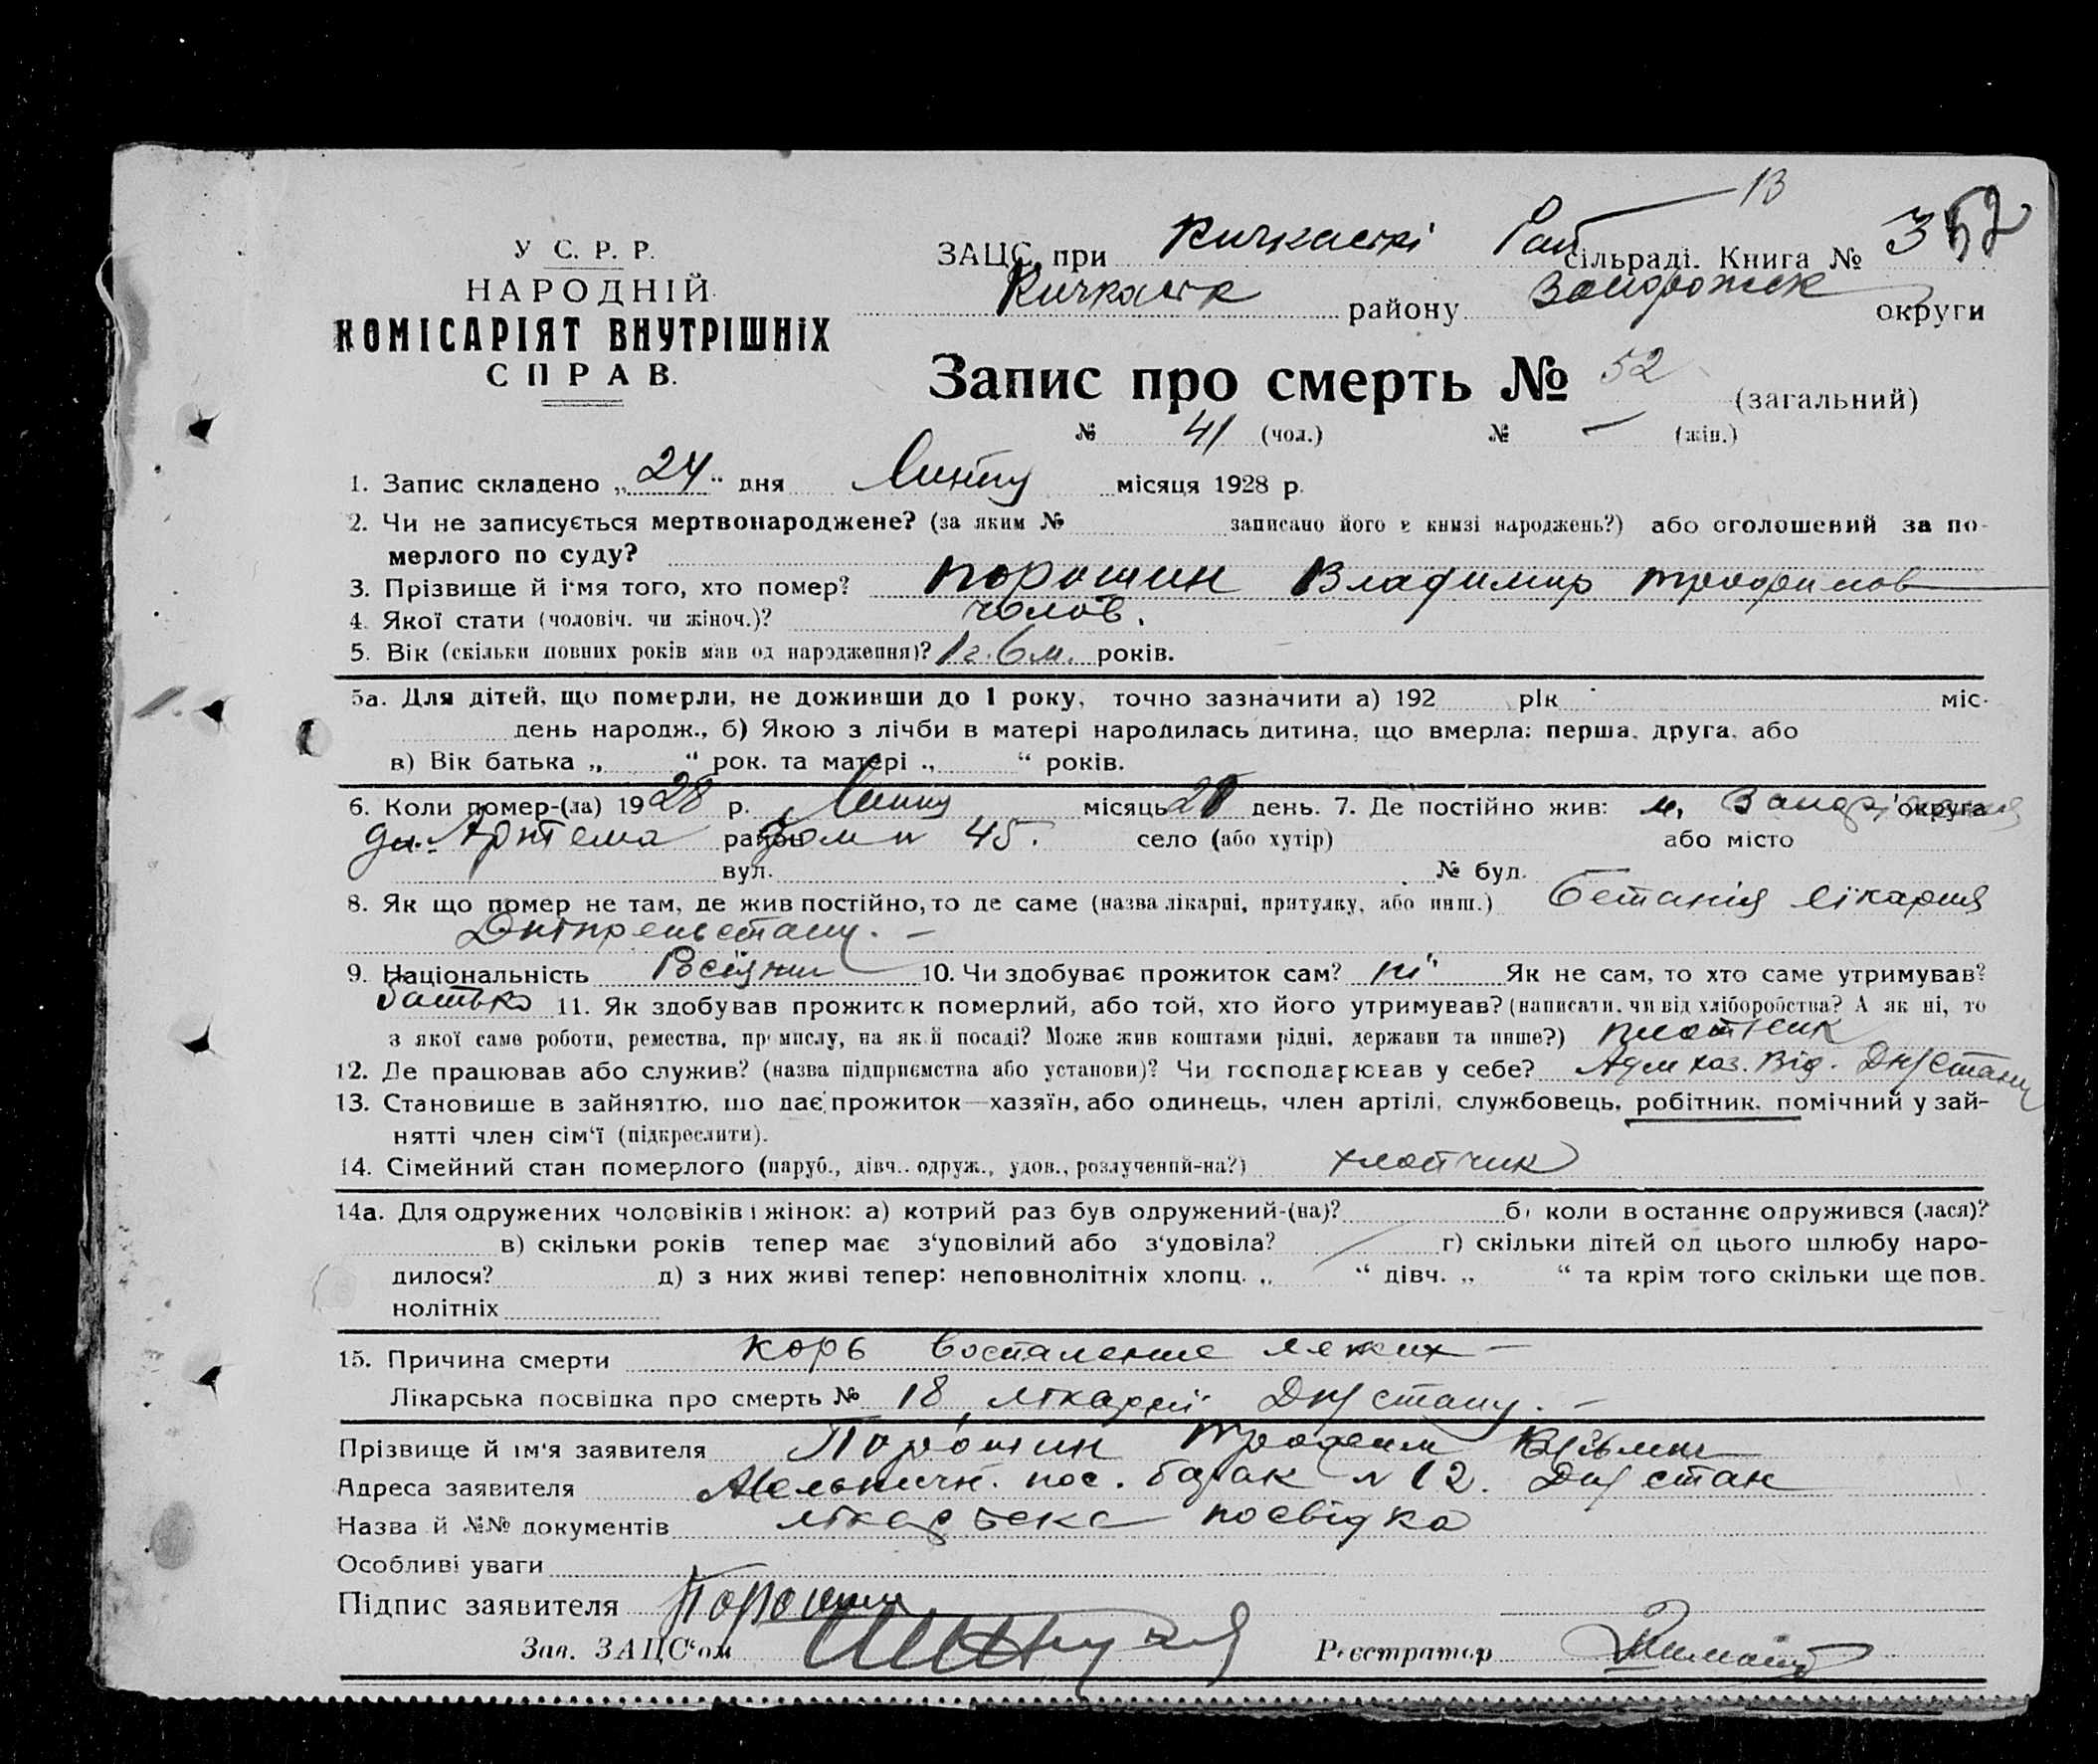 13
У С. Р. Р.
НАРОДНІЙ
КОМІСАРІЯТ ВНУТРІШНІХ
СПРАВ.
ЗАЦС при Кичкаській Рай сільраді. Книга № 352
Кичкаськ району Запорожск округи
Запис про смерть № 52 (загальний)
№ 41 (чол.) № — (жін.)
1. Запис складено „24“ дня місяця 1928 р.
2. Чи не записується мертвонароджене? (за яким № записано його в книзі народжень?) або оголошений за по-
мерлого по суду?
3. Прізвище й і'мя того, хто помер? Порошин Владимир Трофимов
4. Якої стати (чоловіч. чи жіноч.)? чолов.
5. Вік (скільки повних років мав од народження)? 1 г. 6 м. років.
5а. Для дітей, що померли, не доживши до 1 року, точно зазначити а) 192 рік міс.
день народж., б) Якою з лічби в матері народилась дитина, що вмерла: перша, друга, або
в) Вік батька „ “ рок. та матері „ “ років.
6. Коли помер-(ла) 1928 р. місяць день. 7. Де постійно жив: м. округа
Артема район дом № 45. село (або хутір) або місто
вул. № буд.
8. Як що помер не там, де жив постійно, то де саме (назва лікарні, притулку, або инш.) лікарня
9. Національність 10. Чи здобуває прожиток сам? ні Як не сам, то хто саме утримував?
батько 11. Як здобував прожиток померлий, або той, хто його утримував? (написати, чи від хліборобства? А як ні, то
з якої саме роботи, ремества, промислу, на якій посаді? Може жив коштами рідні, держави та инше?) плотник
12. Де працював або служив? (назва підприємства або установи)? Чи господарював у себе? Адм хоз. Від. Днустану
13. Становище в зайняттю, що дає прожиток—хазяїн, або одинець, член артілі, службовець, робітник, помічний у зай-
нятті член сім'ї (підкреслити).
14. Сімейний стан померлого (паруб., дівч., одруж., удов., розлучений-на?) хлопчик
14а. Для одружених чоловіків і жінок: а) котрий раз був одружений-(на)? б) коли востаннє одружився (лася)?
в) скільки років тепер має з'удовілий або з'удовіла? г) скільки дітей од цього шлюбу наро-
дилося? д) з них живі тепер: неповнолітніх хлопц. „ “ дівч. „ “ та крім того скільки ще пов.
нолітніх
15. Причина смерти корь воспаление легких —
Лікарська посвідка про смерть № 18, лікарні Днустану. —
Прізвище й ім'я заявителя Порошин Трофим
Адреса заявителя Мельничн. пос. барак № 12. Днустан
Назва й №№ документів лікарська посвідка
Особливі уваги
Підпис заявителя Порошин
Зав. ЗАЦС'ом
Реєстратор